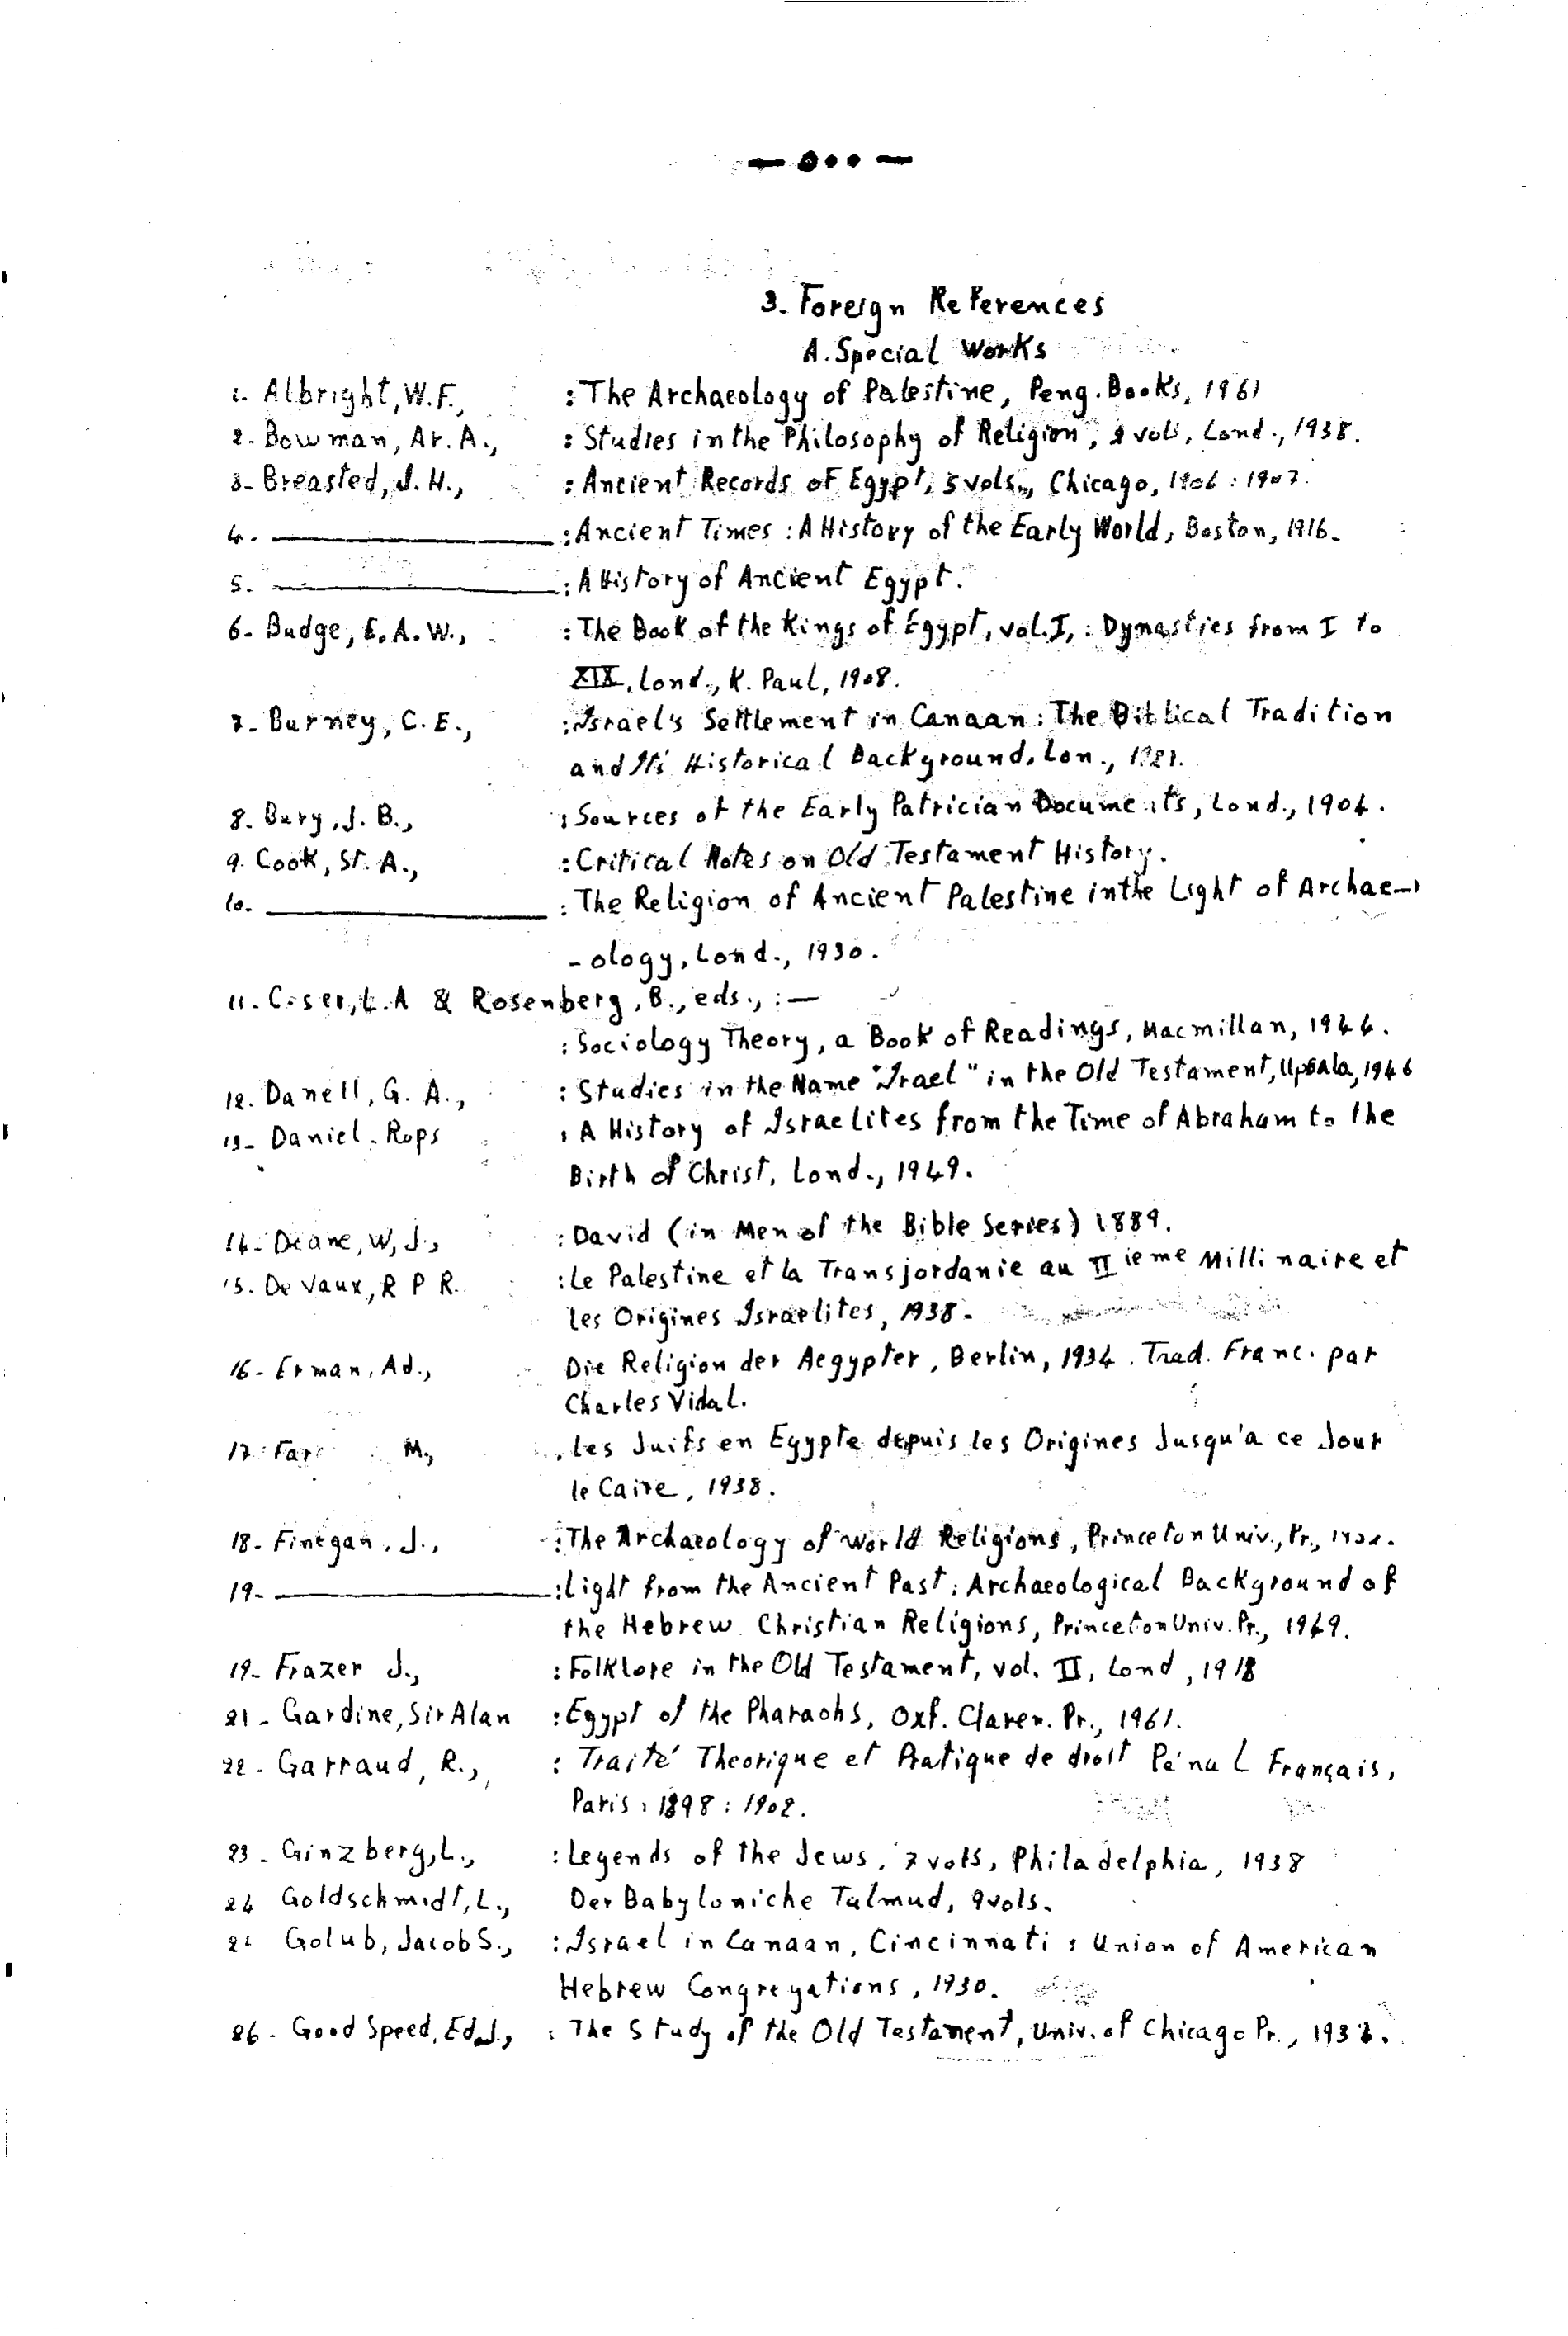 — ٥٠٠ —
3. Foreign References
A. Special Works
1. Albright, W.F., : The Archaeology of Palestine, Peng. Books, 1961
2. Bowman, Ar. A., : Studies in the Philosophy of Religion, 2 vols, Lond., 1938.
3- Breasted, J. H., : Ancient Records of Egypt, 5 vols., Chicago, 1906 : 1907.
4. ——— : Ancient Times : A History of the Early World, Boston, 1916.
5. ——— : A History of Ancient Egypt.
6- Budge, E. A. W., : The Book of the Kings of Egypt, vol. I, : Dynasties from I to
XIX, Lond., K. Paul, 1908.
7- Burney, C. E., : Israel's Settlement in Canaan : The Biblical Tradition
and Its Historical Background, Lon., 1921.
8. Bury, J. B., : Sources of the Early Patrician Documents, Lond., 1904.
9. Cook, St. A., : Critical Notes on Old Testament History.
10. ——— : The Religion of Ancient Palestine in the Light of Archae-
-ology, Lond., 1930.
11. L.A & Rosenberg, B., eds., : —
: Sociology Theory, a Book of Readings, Macmillan, 1944.
12. Danell, G. A., : Studies in the Name "Irael" in the Old Testament, Upsala, 1946
13- Daniel-Rops : A History of Israelites from the Time of Abraham to the
Birth of Christ, Lond., 1949.
14- Deane, W, J., : David (in Men of the Bible Series) 1889.
15. De Vaux, R P R. : Le Palestine et la Transjordanie au II ieme Millinaire et
les Origines Israelites, 1938.
16- Erman, Ad., Die Religion der Aegypter, Berlin, 1934. Trad. Franc. par
Charles Vidal.
17. M., : Les Juifs en Egypte depuis les Origines Jusqu'a ce Jour
le Caire, 1938.
18- Finegan, J., : The Archaeology of World Religions, Princeton Univ., Pr.,
19- ——— : Light from the Ancient Past : Archaeological Background of
the Hebrew Christian Religions, Princeton Univ. Pr., 1949.
19- Frazer J., : Folklore in the Old Testament, vol. II, Lond, 1918
21- Gardine, Sir Alan : Egypt of the Pharaohs, Oxf. Claren. Pr., 1961.
22- Garraud, R., : Traité Theorique et Pratique de droit Pénal Français,
Paris, 1898 : 1902.
23- Ginzberg, L., : Legends of the Jews, 7 vols, Philadelphia, 1938
24 Goldschmidt, L., Der Babyloniche Talmud, 9 vols.
Golub, Jacob S., : Israel in Canaan, Cincinnati : Union of American
Hebrew Congregations, 1930.
26- Good Speed, Ed. J., : The Study of the Old Testament, Univ. of Chicago Pr.,